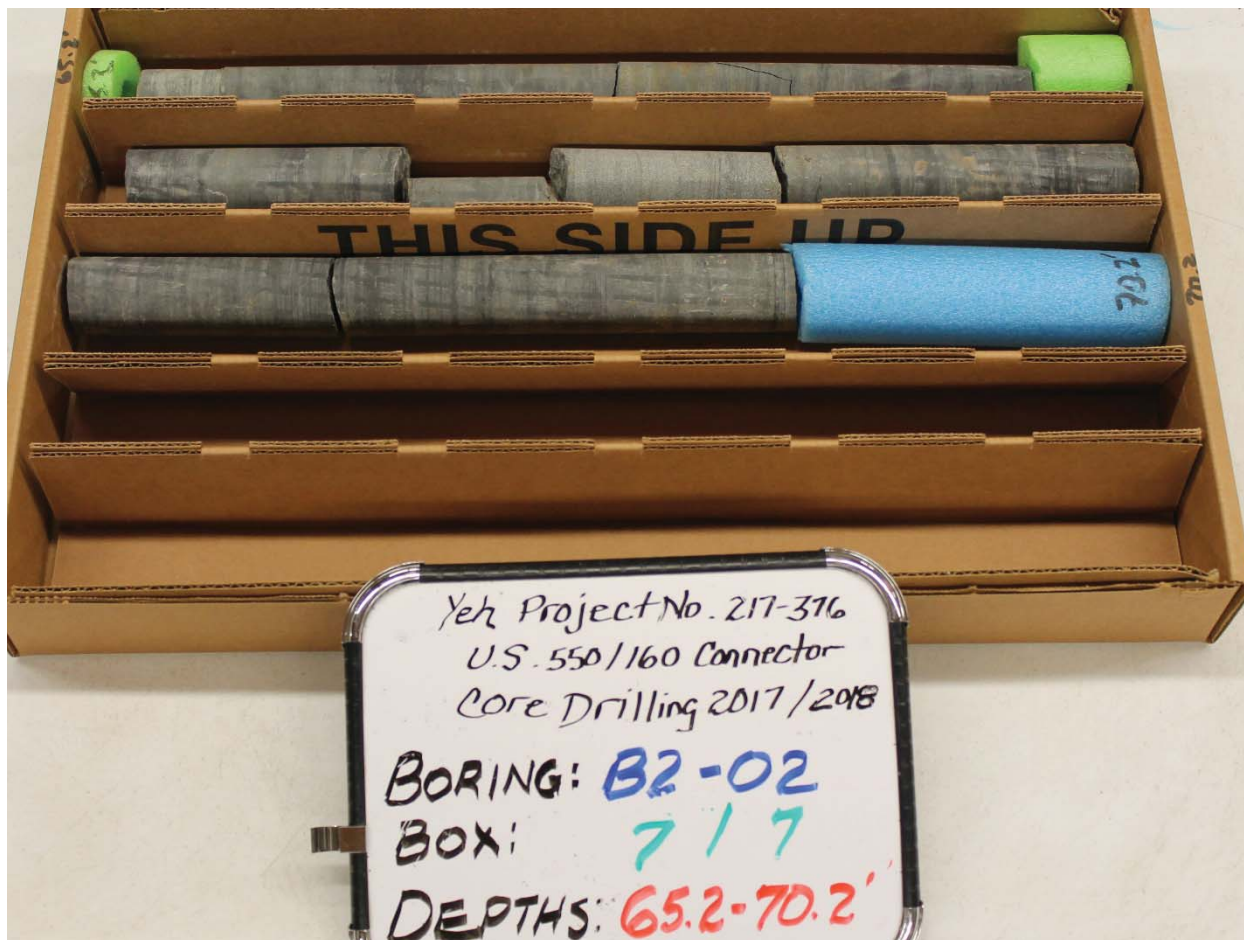 65.2'
THIS SIDE UP
70.2'
70.2
Yeh Project No. 217-376
U.S. 550/160 Connector
Core Drilling 2017/2018
BORING: B2-02
BOX: 7/7
DEPTHS: 65.2-70.2'